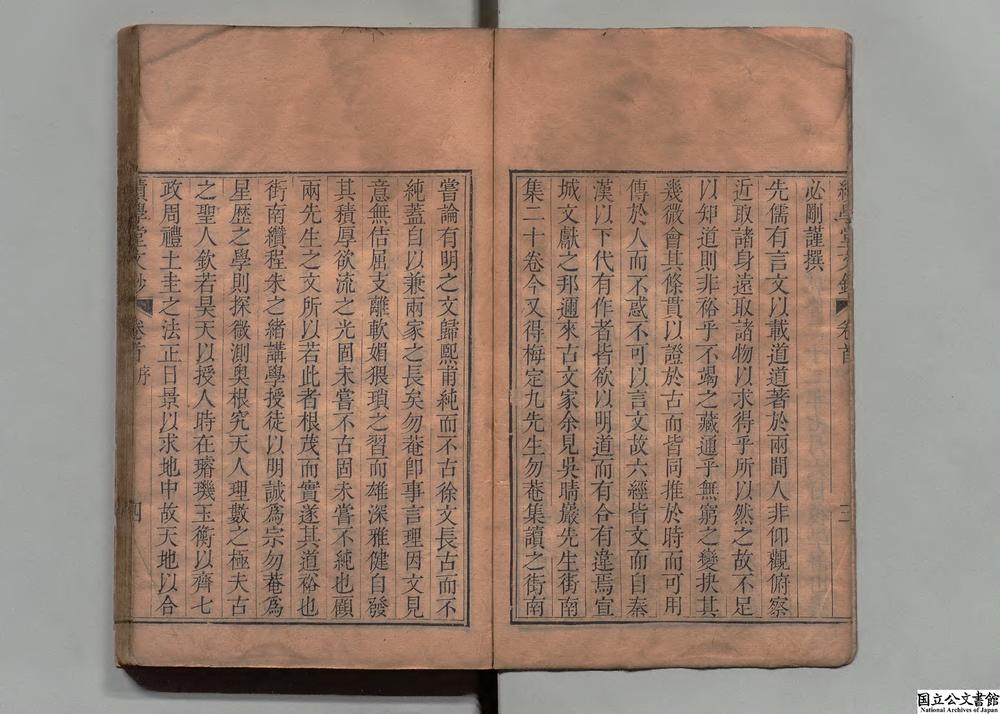 績學堂文鈔
卷首
三
必剛謹撰
先儒有言文以載道道著於兩間人非仰觀俯察
近取諸身遠取諸物以求得乎所以然之故不足
以知道則非裕乎不竭之藏通乎無窮之變抉其
幾微會其條貫以證於古而皆同推於時而可用
傳於人而不惑不可以言文故六經皆文而自秦
漢以下代有作者皆欲以明道而有合有違焉宣
城文獻之邦邇來古文家余見吳晴巖先生街南
集二十卷今又得梅定九先生勿菴集讀之街南
嘗論有明之文歸熙甫純而不古徐文長古而不
純蓋自以兼兩家之長矣勿菴卽事言理因文見
意無佶屈支離軟媚猥瑣之習而雄深雅健自發
其積厚欲流之光固未嘗不古固未嘗不純也顧
兩先生之文所以若此者根茂而實遂其道裕也
街南纘程朱之緒講學授徒以明誠爲宗勿菴爲
星歷之學則探微測奥根究天人理數之極夫古
之聖人欽若昊天以授人時在璿璣玉衡以齊七
政周禮土圭之法正日景以求地中故天地以合
績學堂文鈔
卷首 序
四
国立公文書館
National Archives of Japan